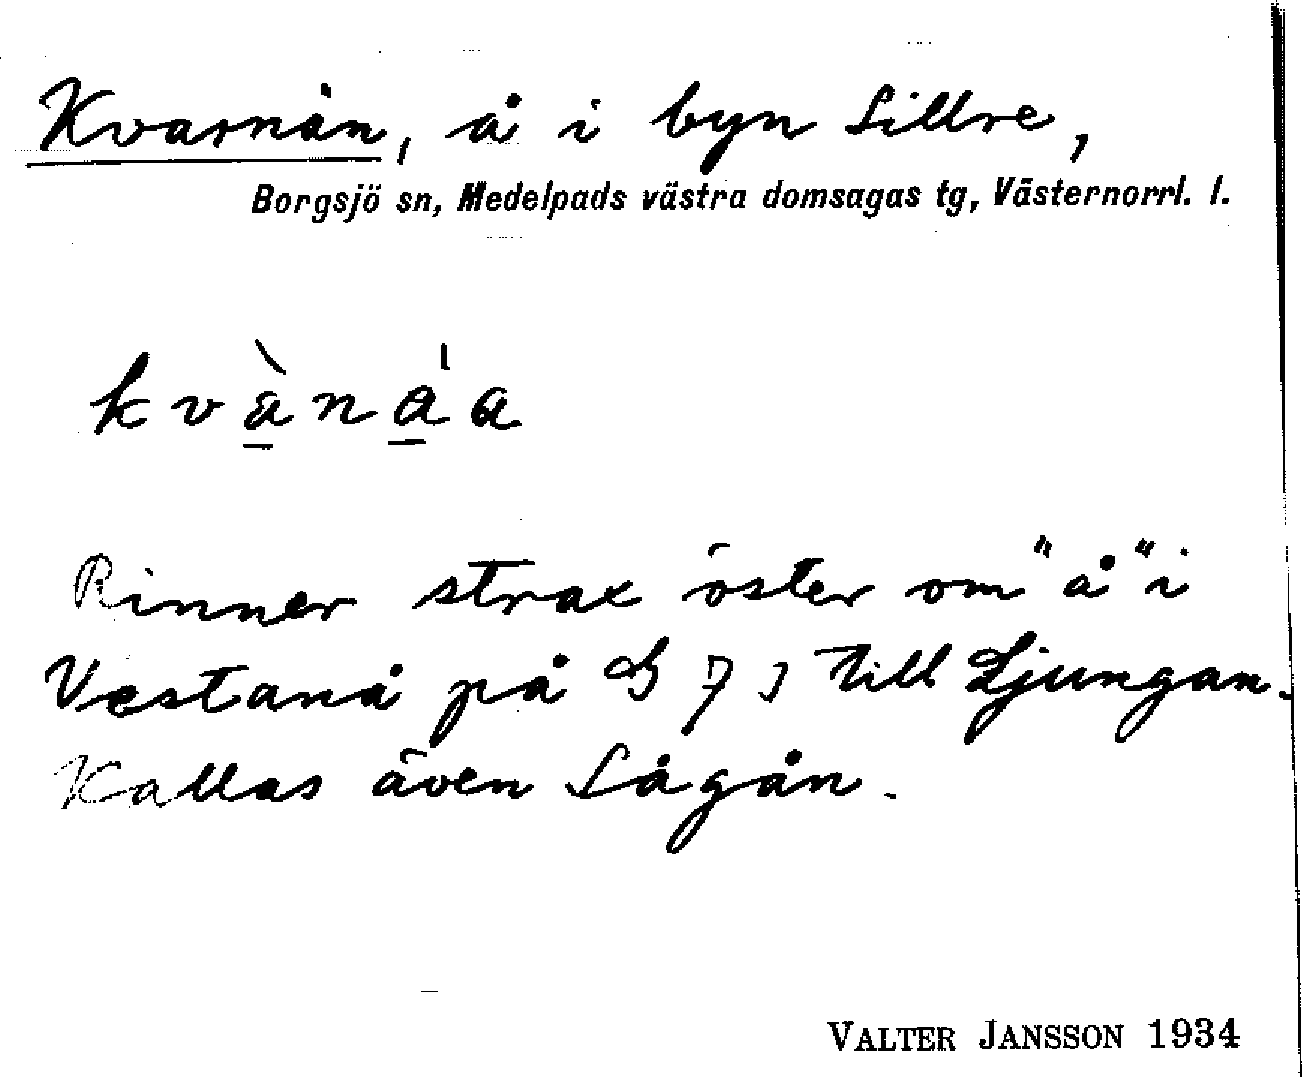 Kvarnån, å i byn Sillre,
Borgsjö sn, Medelpads västra domsagas tg, Västernorrl. l.
kvànáa
Rinner strax öster om "å" i
Vestanå på G 71 till Ljungan.
Kallas även Sågån.
VALTER JANSSON 1934